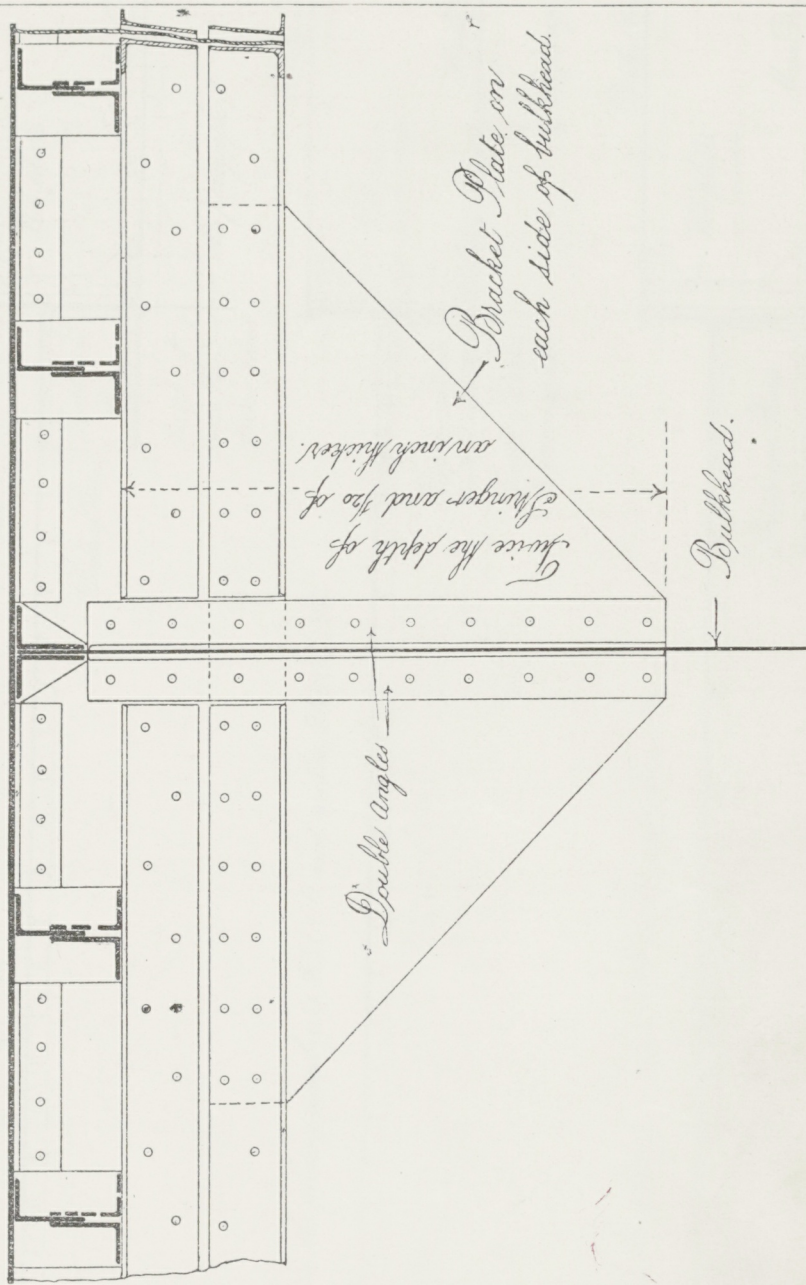 Bracket Plate on
each side of bulkhead.
Twice the depth of
Stringer and 1/20 of
an inch thicker.
Double Angles
Bulkhead.